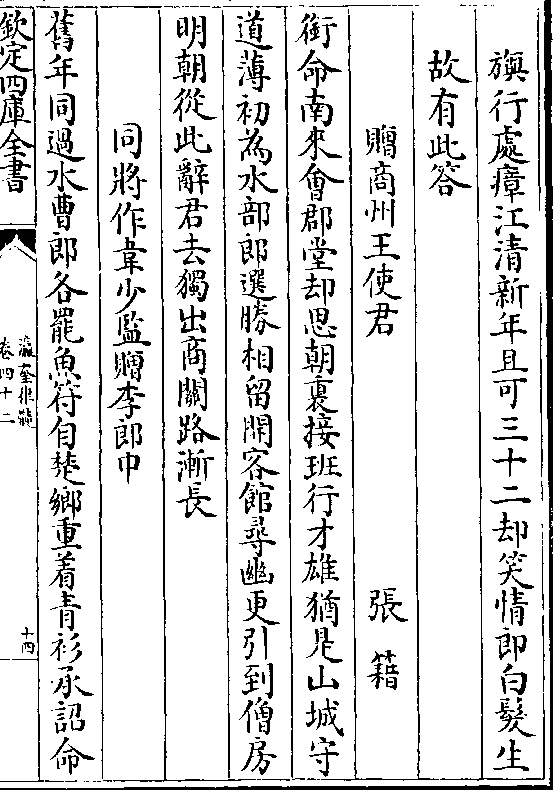 旟行處瘴江清新年且可三十二却笑情郎白髮生
故有此答
贈商州王使君　張籍
銜命南來會郡堂却思朝裏接班行才雄猶是山城守
道薄初為水部郎選勝相留開客館尋幽更引到僧房
明朝從此辭君去獨出商關路漸長
同將作韋少監贈李郎中
舊年同過水曹郎各罷魚符自楚鄉重着青衫承詔命
欽定四庫全書
瀛奎律髓
卷四十二
十四